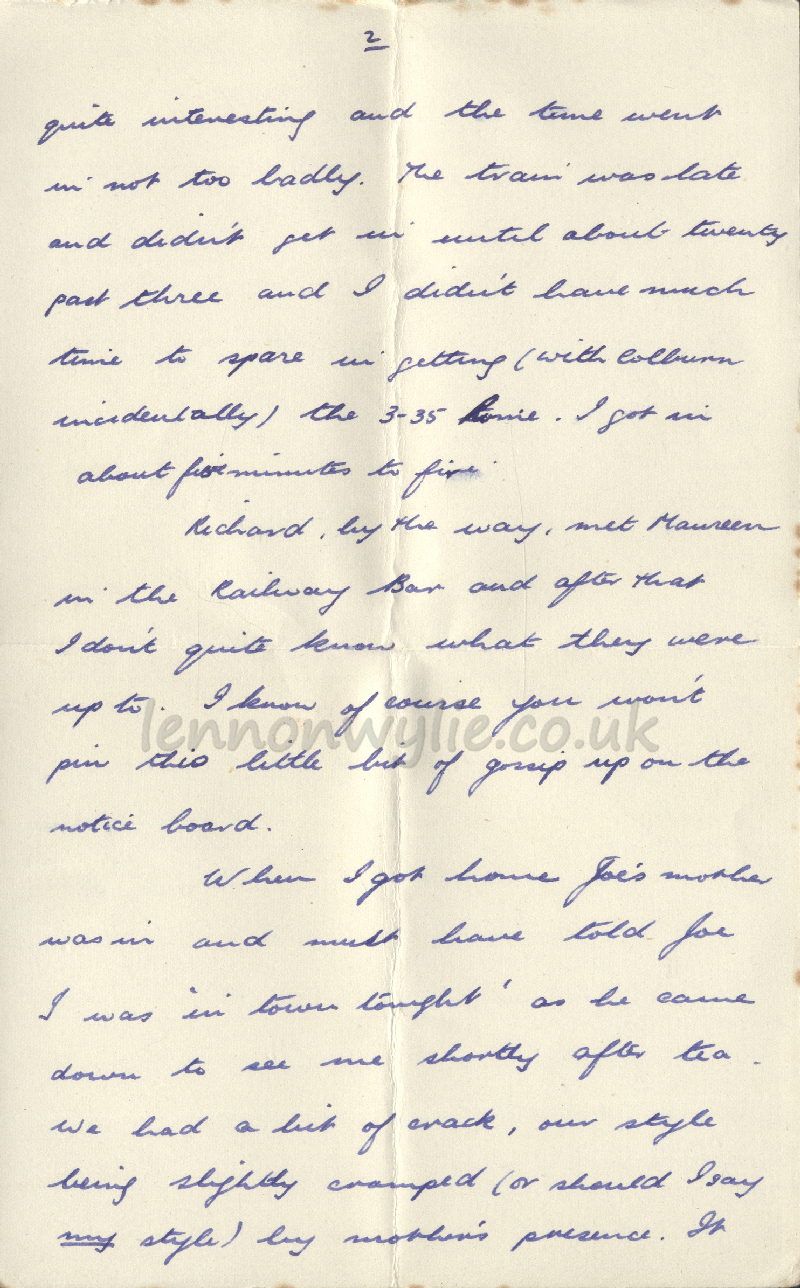 2
quite interesting and the time went
in not too badly. The train was late
and didn't get in until about twenty
past three and I didn't have much
time to spare in getting (with Colburn
incidentally) the 3-35 home. I got in
about five minutes to five.
Richard, by the way, met Maureen
in the Railway Bar and after that
I don't quite know what they were
up to. I know of course you won't
lennonwylie.co.uk
pin this little bit of gossip up on the
notice board.
When I got home Joe's mother
was in and must have told Joe
I was 'in town tonight' as he came
down to see me shortly after tea.
We had a bit of crack, our style
being slightly cramped (or should I say
my style) by mother's presence. It